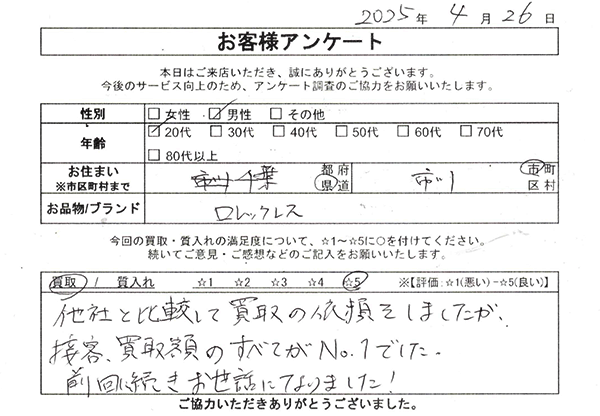 2025年 4月 26日
お客様アンケート
本日はご来店いただき、誠にありがとうございます。
今後のサービス向上のため、アンケート調査のご協力をお願いいたします。
性別 □女性 ☑男性 □その他
年齢 ☑20代 □30代 □40代 □50代 □60代 □70代
□80代以上
お住まい ※市区町村まで 千葉 都府県道 市川 市町区村
お品物/ブランド ロレックレス
今回の買取・質入れの満足度について、☆1～☆5に○を付けてください。
続いてご意見・ご感想などのご記入をお願いいたします。
買取 / 質入れ ☆1 ☆2 ☆3 ☆4 ☆5 ※【評価:☆1(悪い)－☆5(良い)】
他社と比較して買取の依頼をしましたが、
接客、買取額のすべてがNo.1でした。
前回に続きお世話になりました!
ご協力いただきありがとうございました。